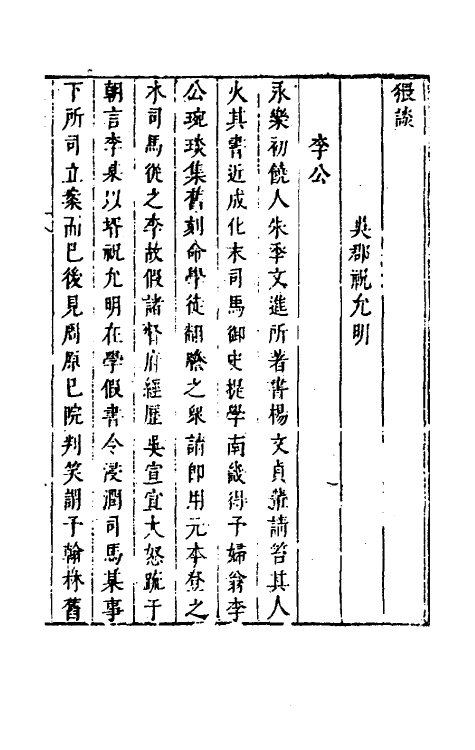 猥談
吳郡祝允明
李公
永樂初饒人朱季文進所著書楊文貞輩請笞其人
火其書近成化末司馬御史提學南畿得予婦翁李
公琬琰集舊刻命學徒翻謄之眾請即用元本登之
木司馬從之李故假諸督府經歷吳宣宣大怒疏于
朝言李某以壻祝允明在學假書令浸潤司馬某事
下所司立案而已後見周原已院判笑謂予翰林舊